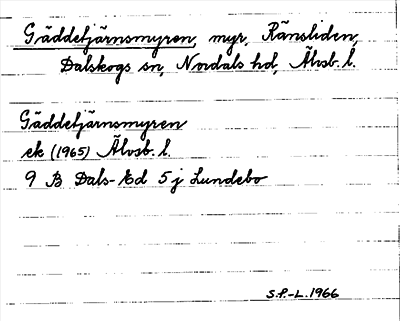 Gäddetjärnsmyren, myr, Ränsliden,
Dalskogs sn, Nordals hd, Älvsb. l.
Gäddetjärnsmyren
ek (1965) Älvsb. l.
9 B Dals-Ed 5 j Lundebo
S.P.-L. 1966